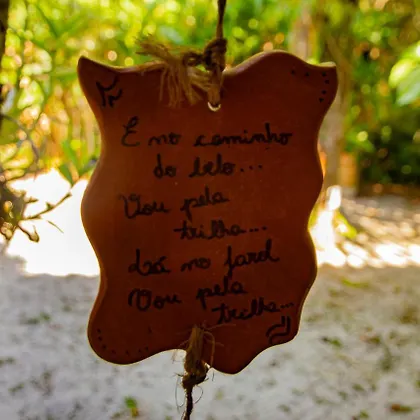 É no caminho
do belo...
Vou pela
trilha...
Lá no farol
Vou pela
trilha...